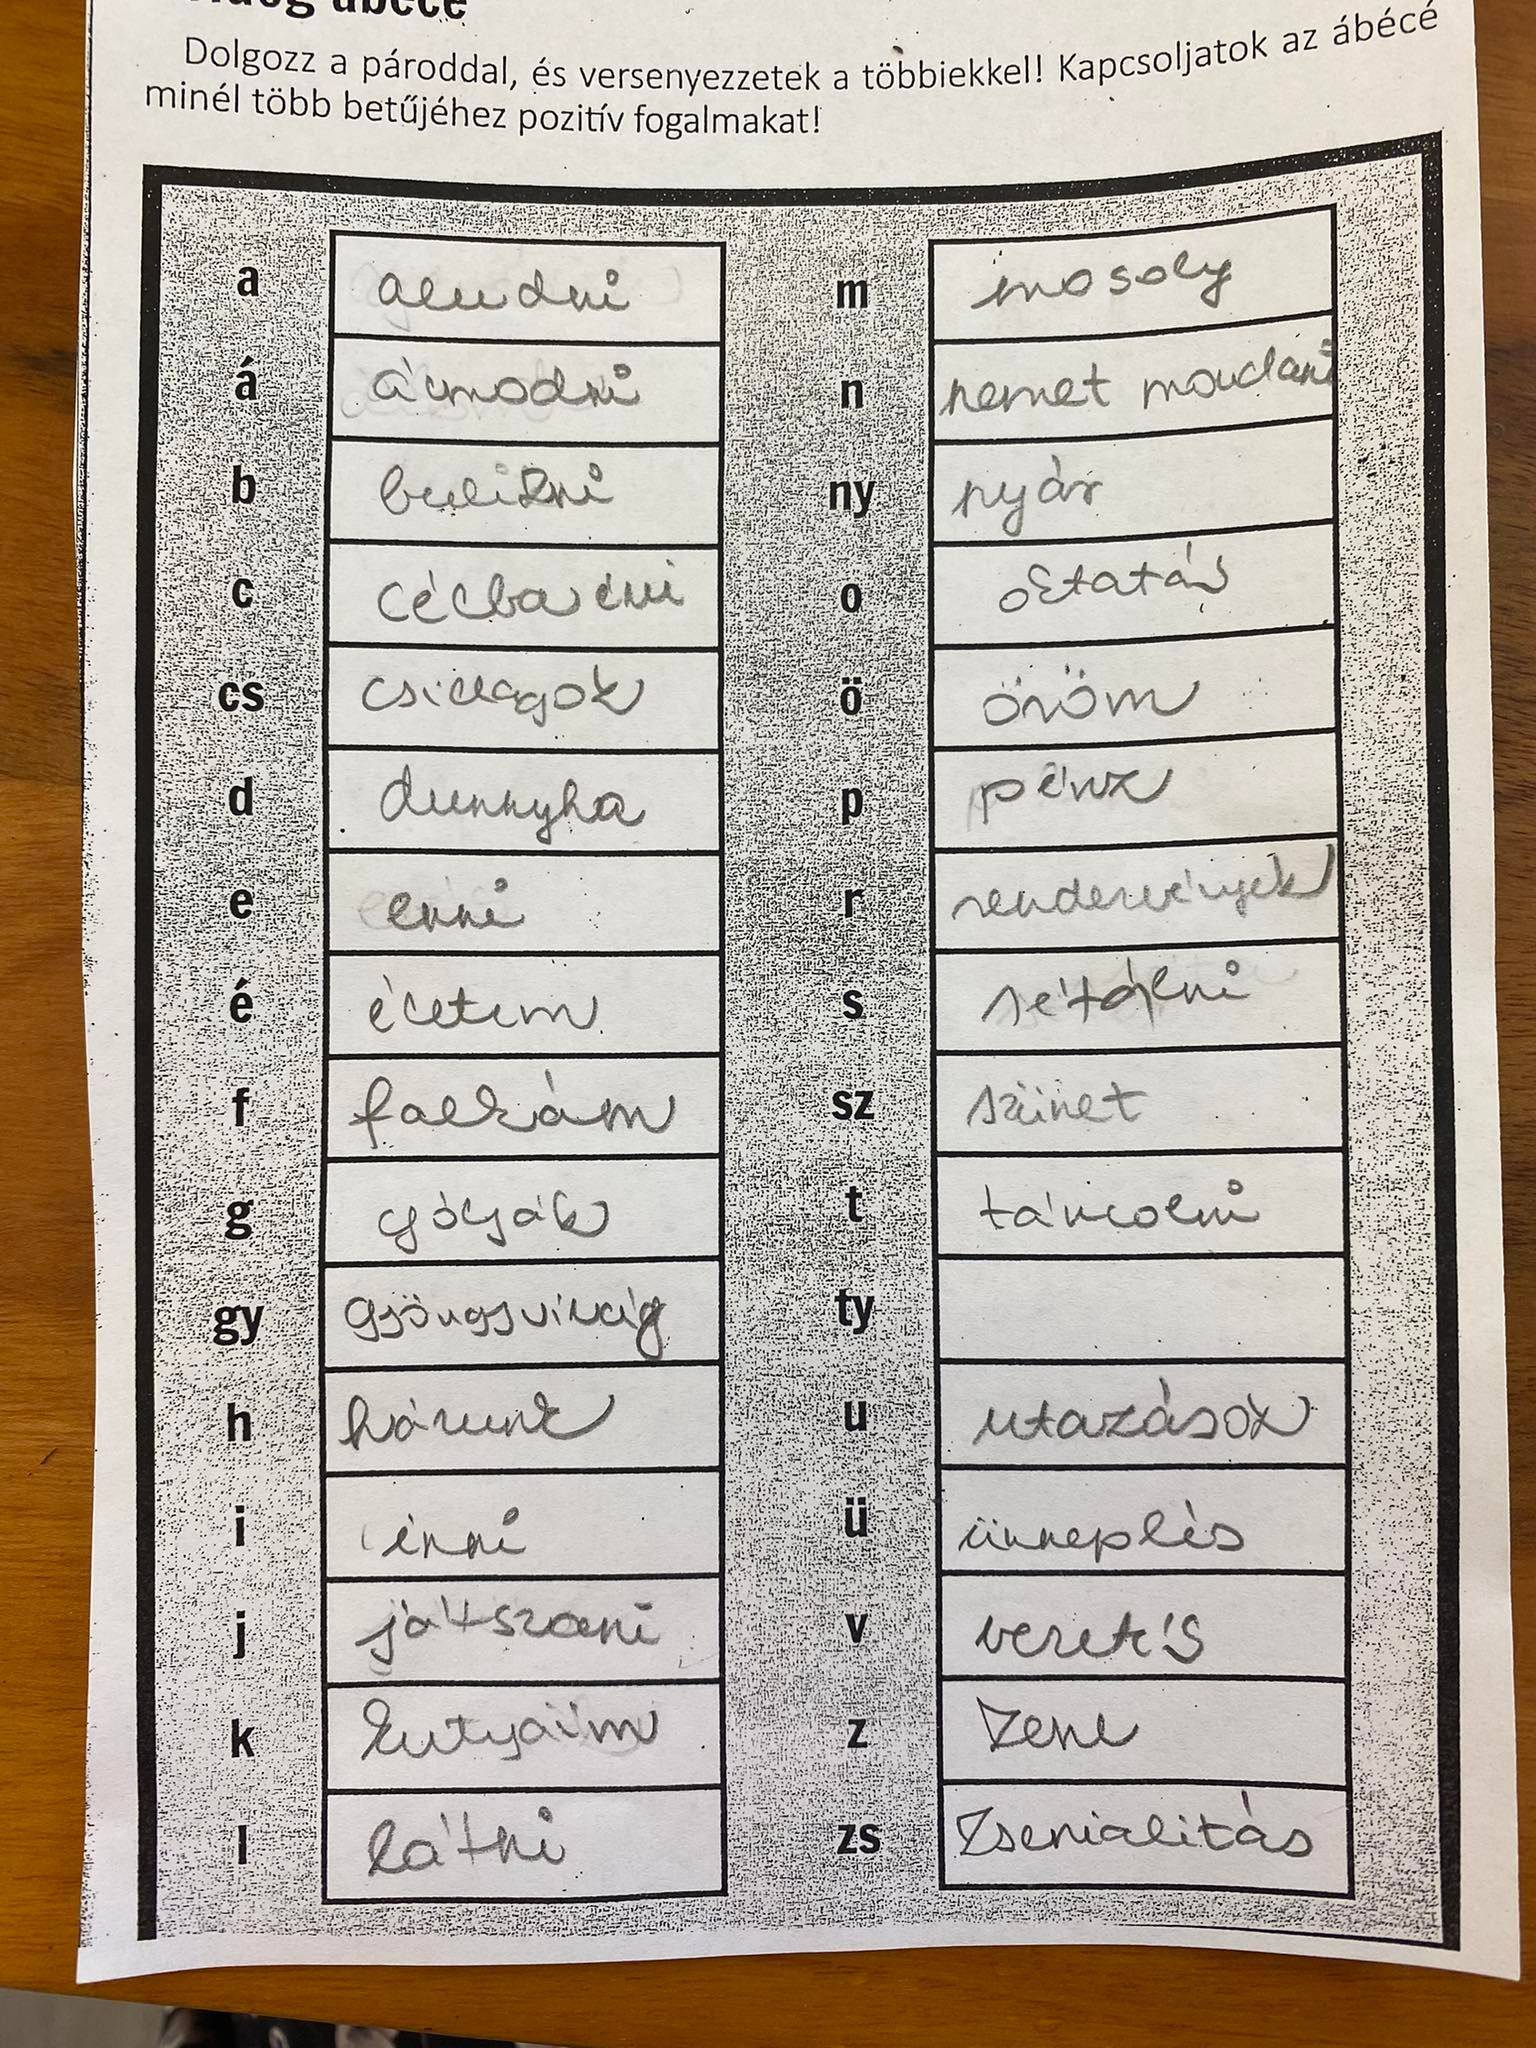 ábécé
Dolgozz a pároddal, és versenyezzetek a többiekkel! Kapcsoljatok az ábécé
minél több betűjéhez pozitív fogalmakat!
a aludni
á álmodni
b bulizni
c célba érni
cs csillagok
d dunnyha
e enni
é életem
f falkám
g gólyák
gy gyöngyvirág
h házunk
i inni
j játszani
k kutyáim
l látni
m mosoly
n nemet mondani
ny nyár
o oktatás
ö öröm
p pénz
r rendezvények
s sétálni
sz szünet
t táncolni
ty
u utazások
ü ünneplés
v vezetés
z zene
zs zsenialitás